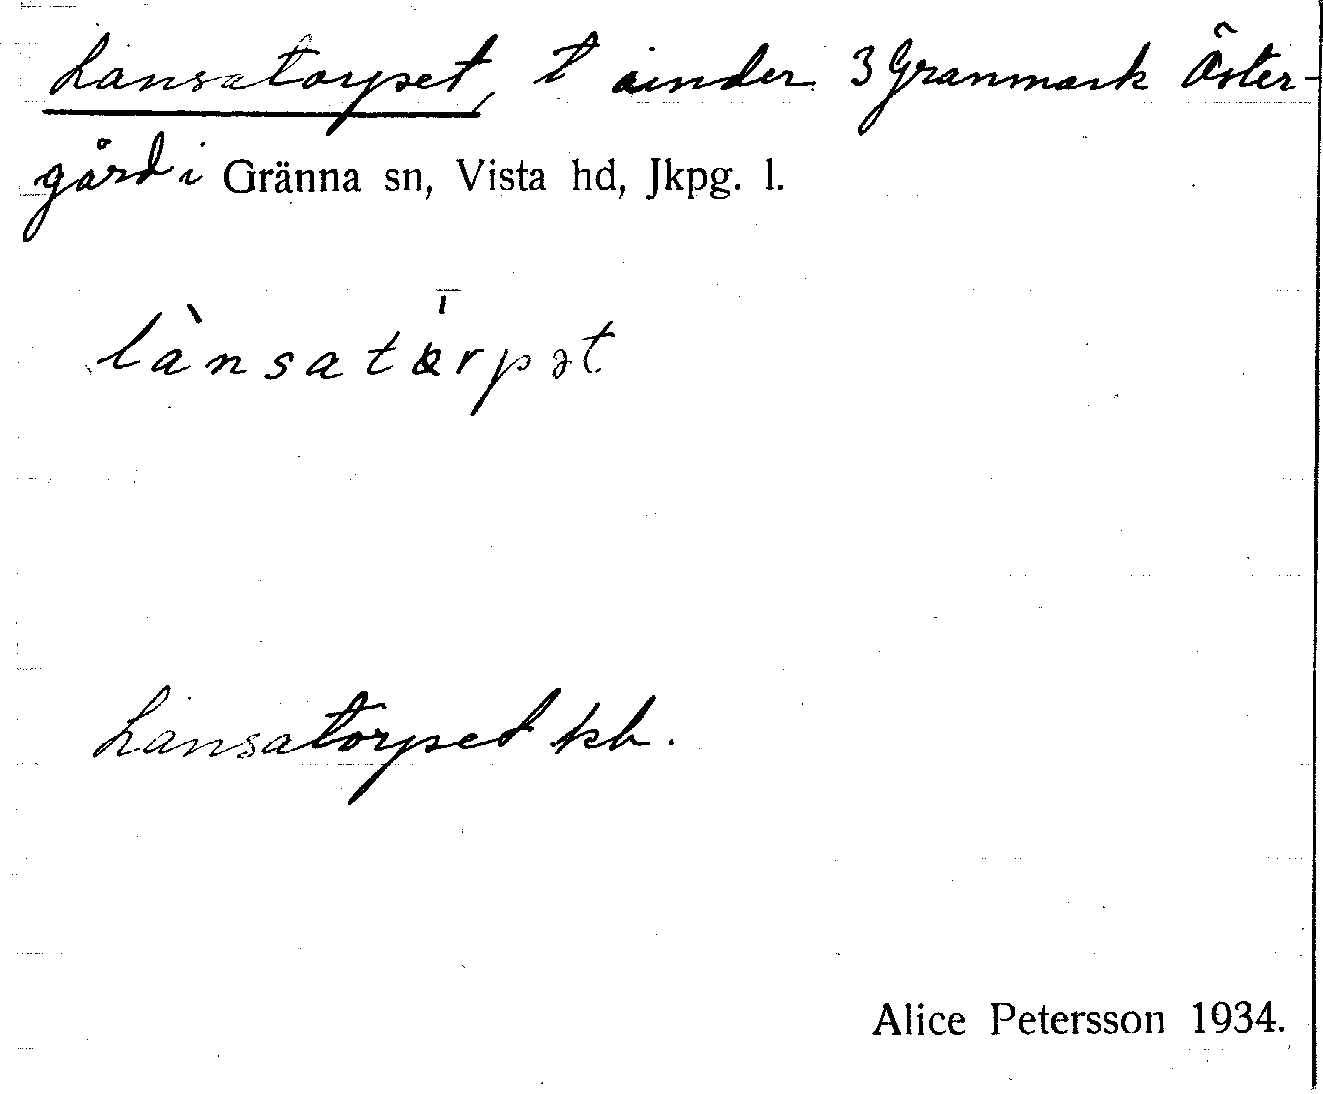 Lansatorpet, t under 3 Granmark Öster-
gård i Gränna sn, Vista hd, Jkpg. l.
lànsatǫ̈rpət
Lansatorpet kb.
Alice Petersson 1934.